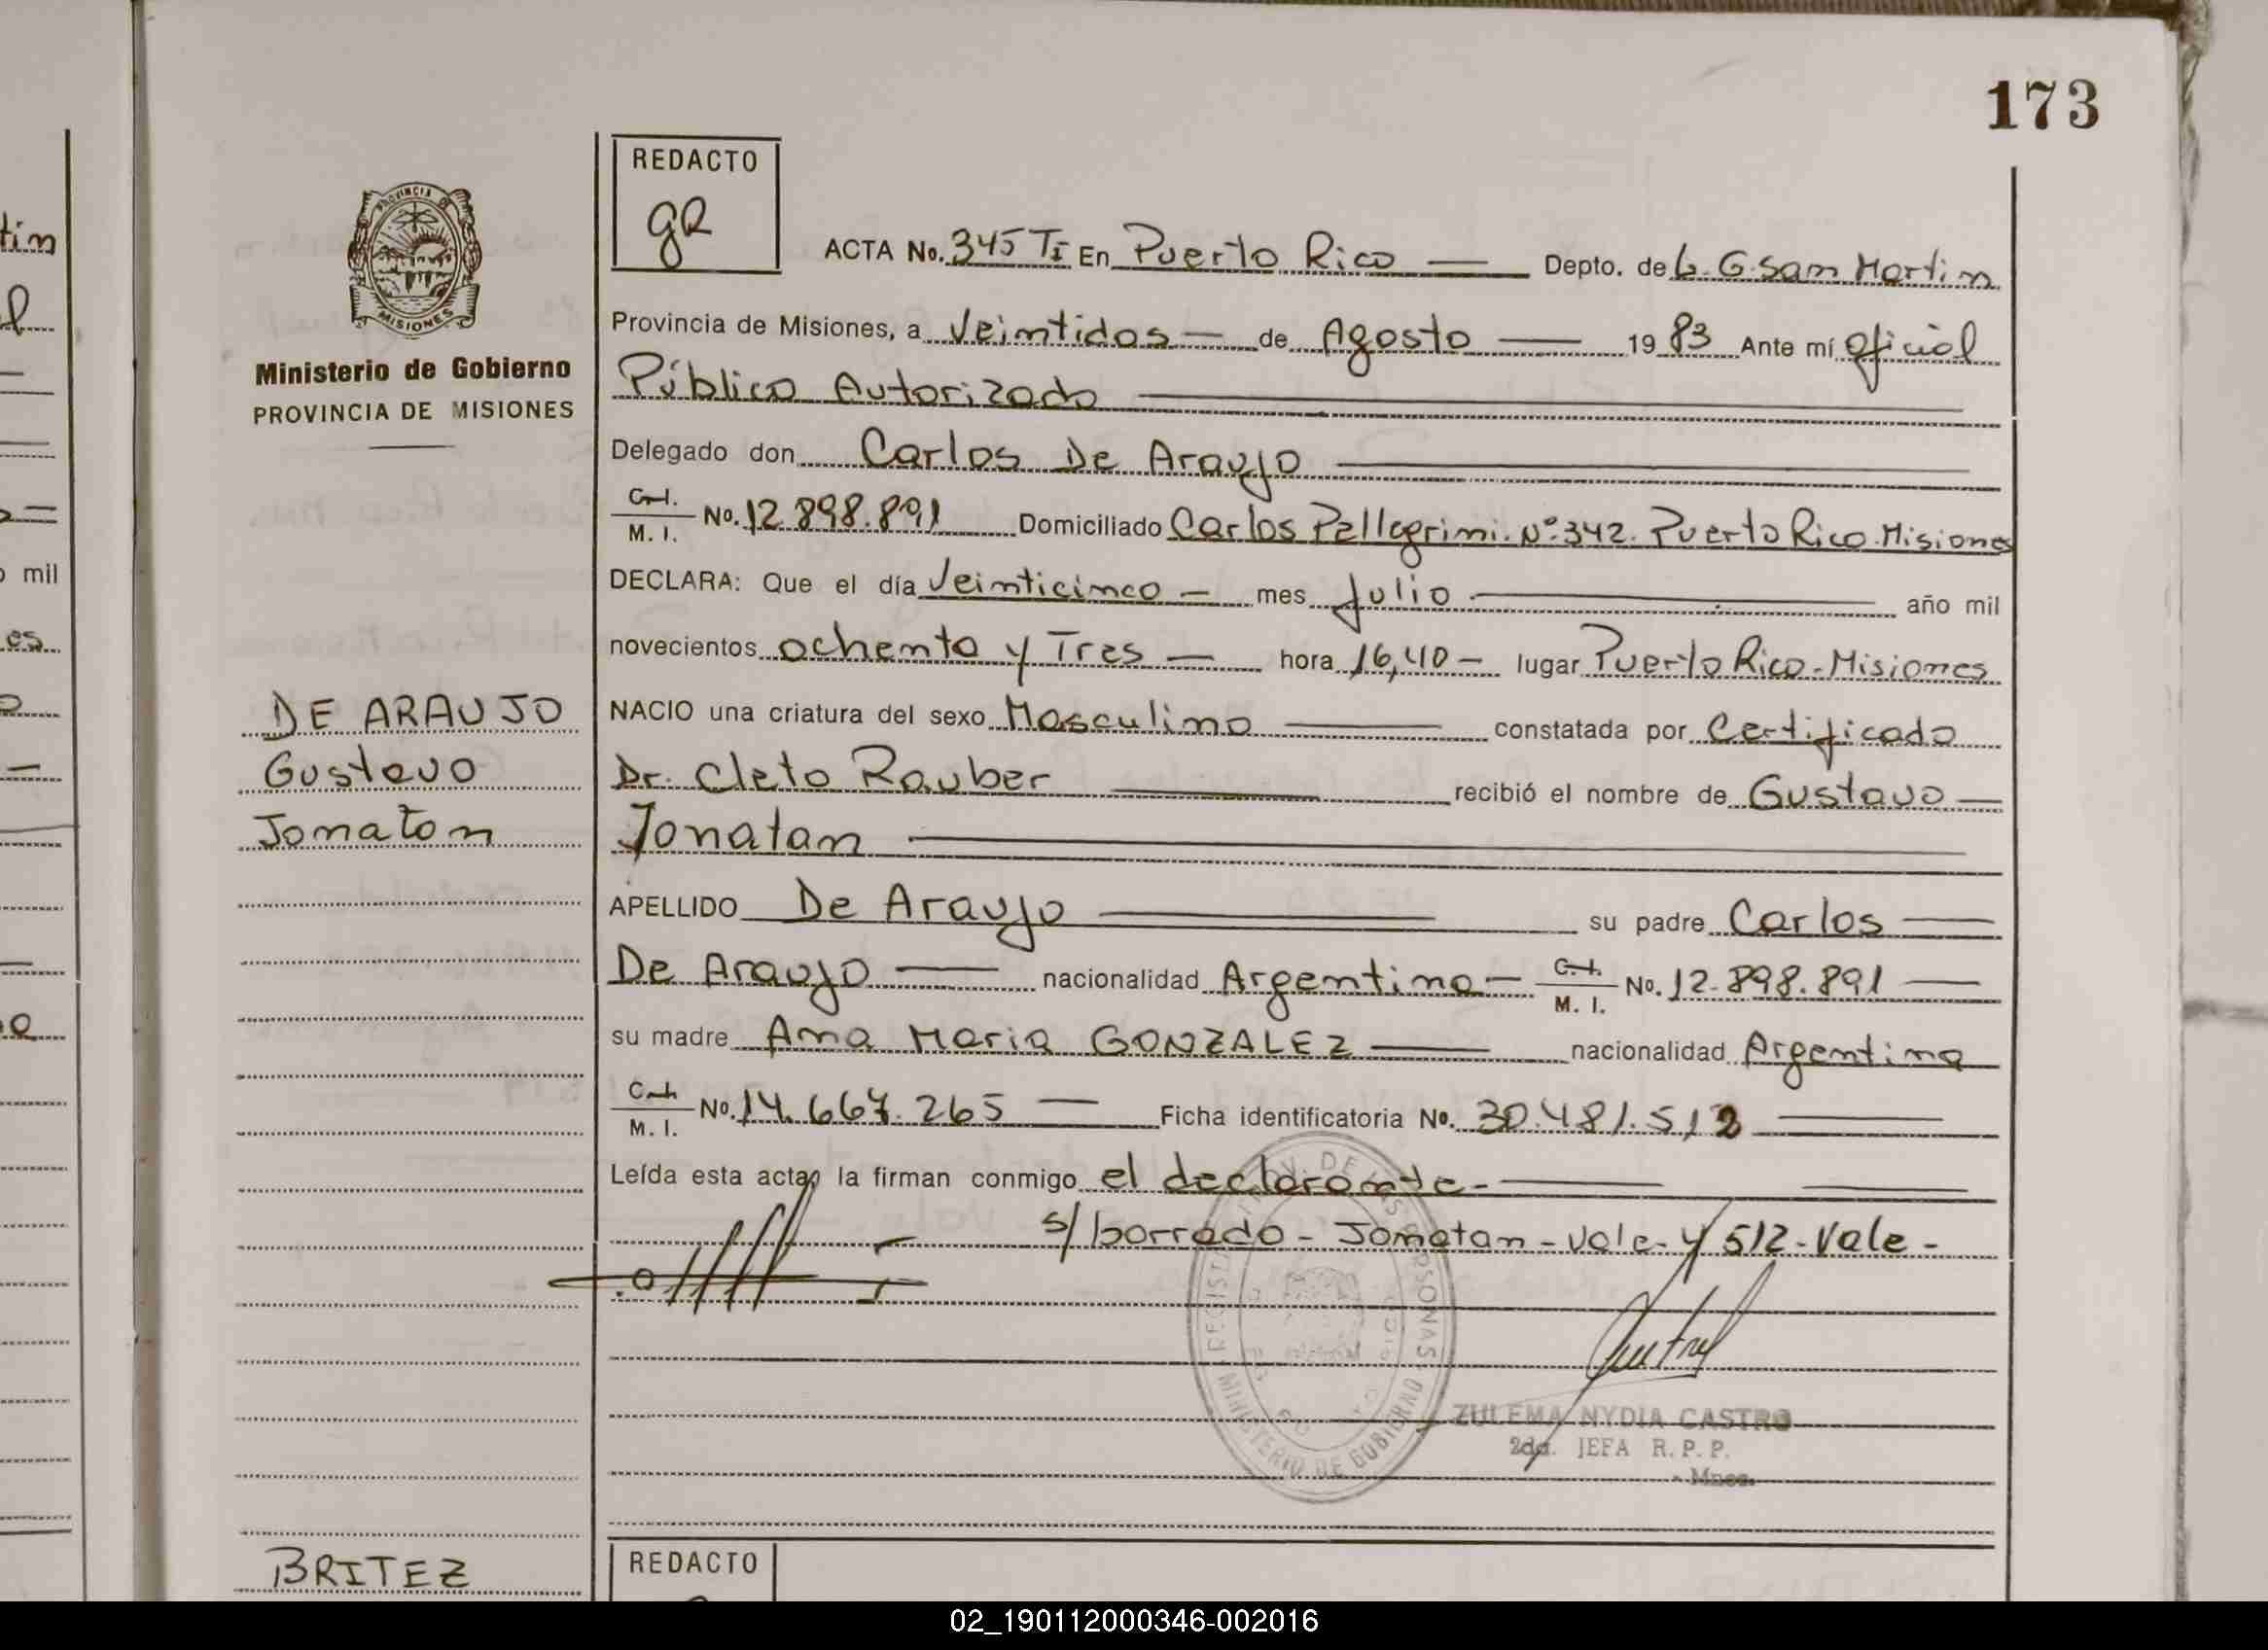 173
REDACTO
gR
ACTA No. 345 TI En Puerto Rico — Depto. de L. G. San Martin
Provincia de Misiones, a Veintidos — de Agosto — 1983 Ante mí oficial
Público Autorizado
Delegado don Carlos De Araujo
C. I. M. I. No. 12.898.891 Domiciliado Carlos Pellegrini. Nº 342. Puerto Rico. Misiones
DECLARA: Que el día Veinticinco — mes Julio — año mil
novecientos ochenta y Tres — hora 16,40 — lugar Puerto Rico - Misiones
NACIO una criatura del sexo Masculino — constatada por Certificado
Dr. Cleto Rauber — recibió el nombre de Gustavo —
Jonatan
APELLIDO De Araujo — su padre Carlos —
De Araujo — nacionalidad Argentina — C. I. M. I. No. 12.898.891 —
su madre Ana Maria GONZALEZ — nacionalidad Argentina
C. I. M. I. No. 14.667.265 — Ficha identificatoria No. 30.481.512 —
Leída esta acta, la firman conmigo el declarante. —
s/ borrado - Jonatan - vale - y 512 - Vale -
ZULEMA NYDIA CASTRO
2da. JEFA R. P. P.
Mnes.
PROVINCIA DE
MISIONES
Ministerio de Gobierno
PROVINCIA DE MISIONES
DE ARAUJO
Gustavo
Jonatan
BRITEZ
REDACTO
MINISTERIO DE GOBIERNO
tin
o mil
es
02_190112000346-002016